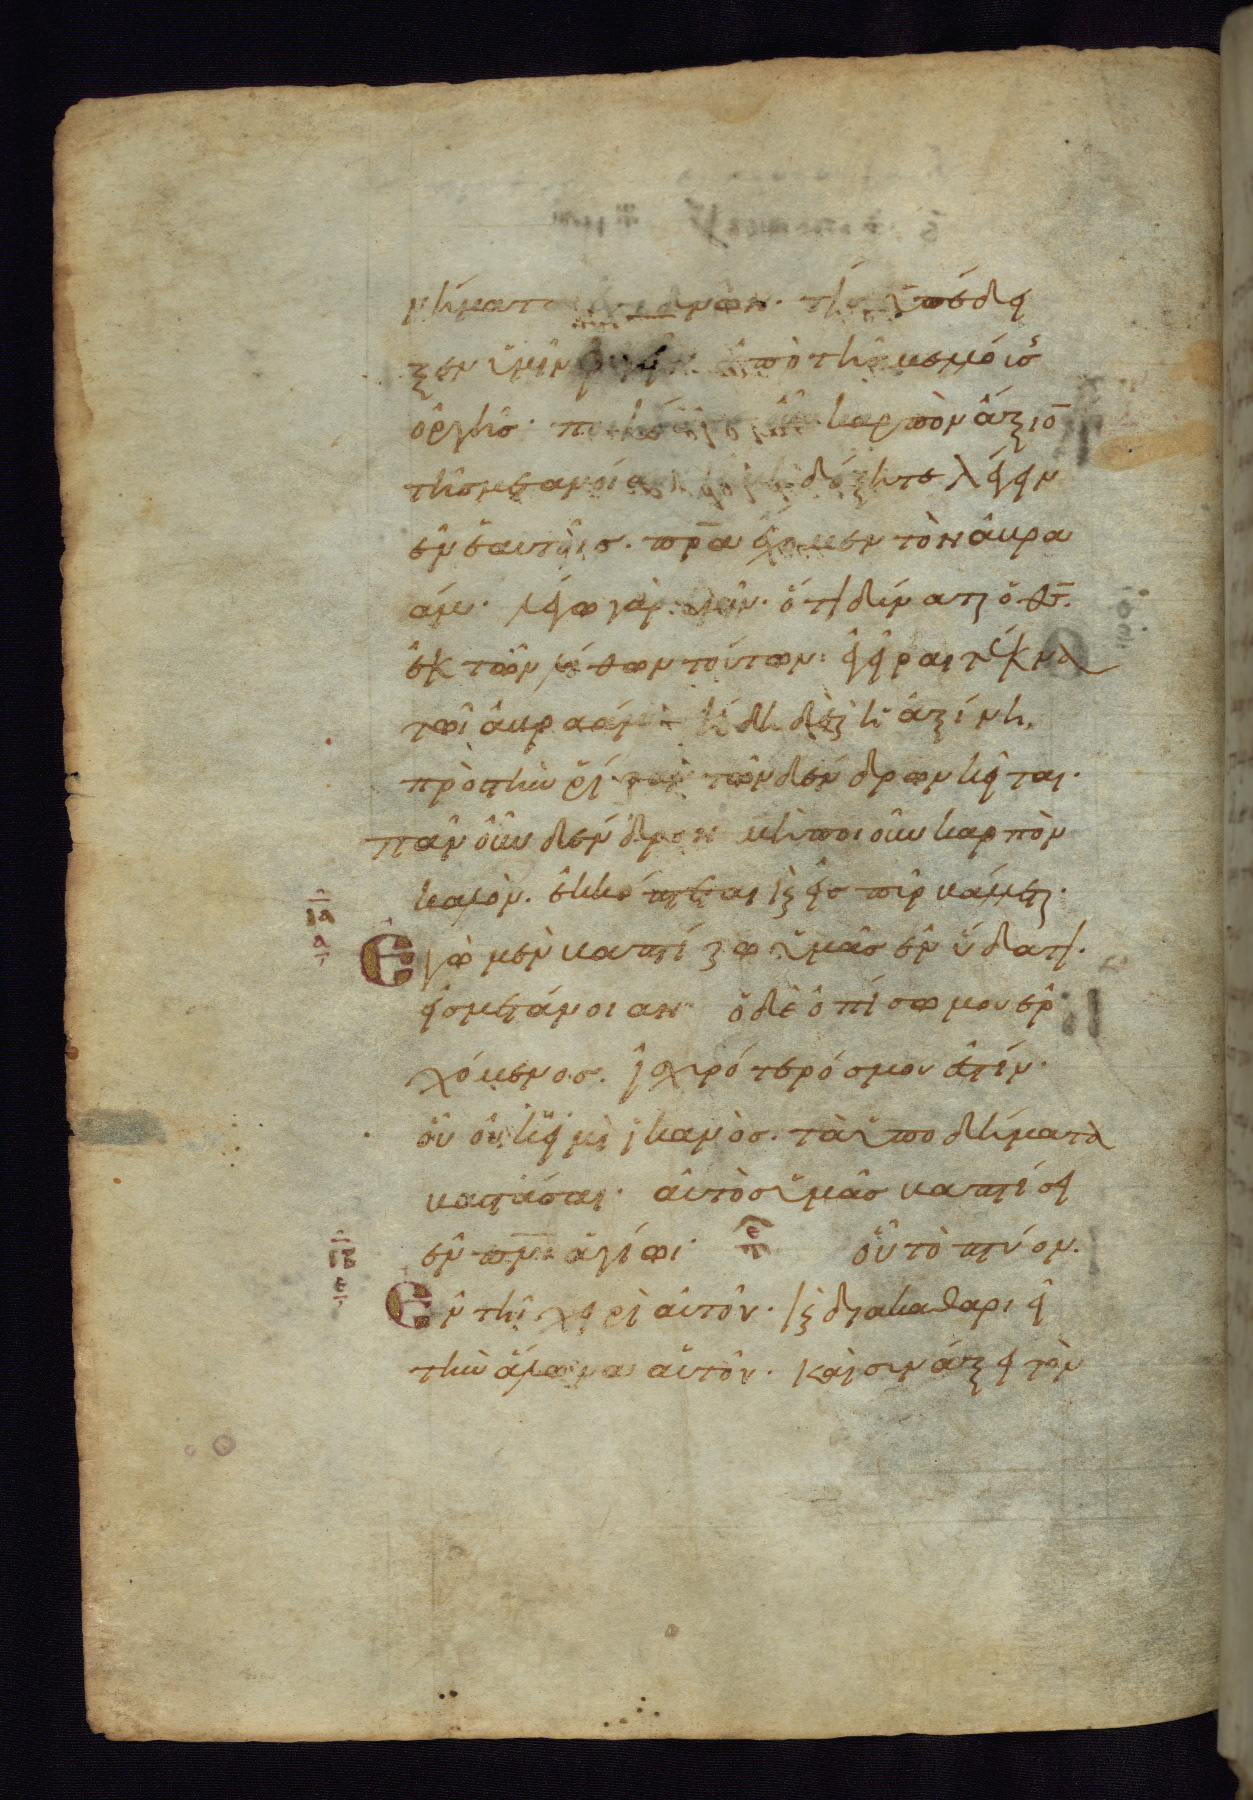 νήματα ἐχιδνῶν· τίς ὑπέδει
ξεν ὑμῖν φυγεῖν ἀπὸ τῆς μελλούσης
ὀργῆς· ποιήσατε οὖν καρπὸν ἄξιον
τῆς μετανοίας καὶ μὴ δόξητε λέγειν
ἐν ἑαυτοῖς· πρ̅α ἔχομεν τὸν ἀβρα
άμ· λέγω γὰρ ὑμῖν· ὅτι δύναται ὁ θς̅
ἐκ τῶν λίθων τούτων ἐγεῖραι τέκνα
τῶ ἀβραάμ· ἤδη δὲ καὶ ἡ ἀξίνη
πρὸς τὴν ῥίζαν τῶν δένδρων κεῖται·
πᾶν οὖν δένδρον μὴ ποιοῦν καρπὸν
καλὸν· ἐκκόπτεται καὶ εἰς πῦρ βάλλεται·
ια
α
Ἐγὼ μὲν βαπτίζω ὑμᾶς ἐν ὕδατι·
εἰς μετάνοιαν· ὁ δὲ ὀπίσω μου ἐρ
χόμενος· ἰσχυρότερός μου ἐστίν·
οὗ οὐκ εἰμὶ ἱκανὸς· τὰ ὑποδήματα
βαστάσαι· αὐτὸς ὑμᾶς βαπτίσει
ἐν πν̅ι ἁγίωι· οὗ τὸ πτύον·
ιβ
ε
Ἐν τῆι χειρὶ αὐτοῦ· καὶ διακαθαριεῖ
τὴν ἅλωνα αὐτοῦ· καὶ συνάξει τὸν